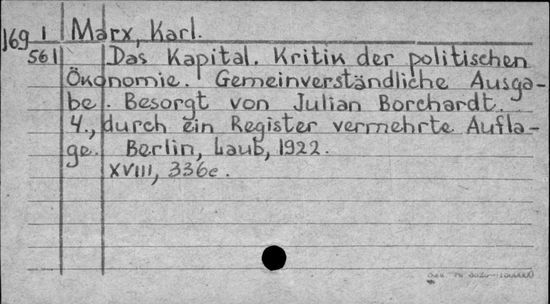 169 1 Marx, Karl.
561 Das Kapital. Kritik der politischen
Ökonomie. Gemeinverständliche Ausga-
be. Besorgt von Julian Borchardt.
4., durch ein Register vermehrte Aufla-
ge. Berlin, Laub, 1922.
XVIII, 336c.